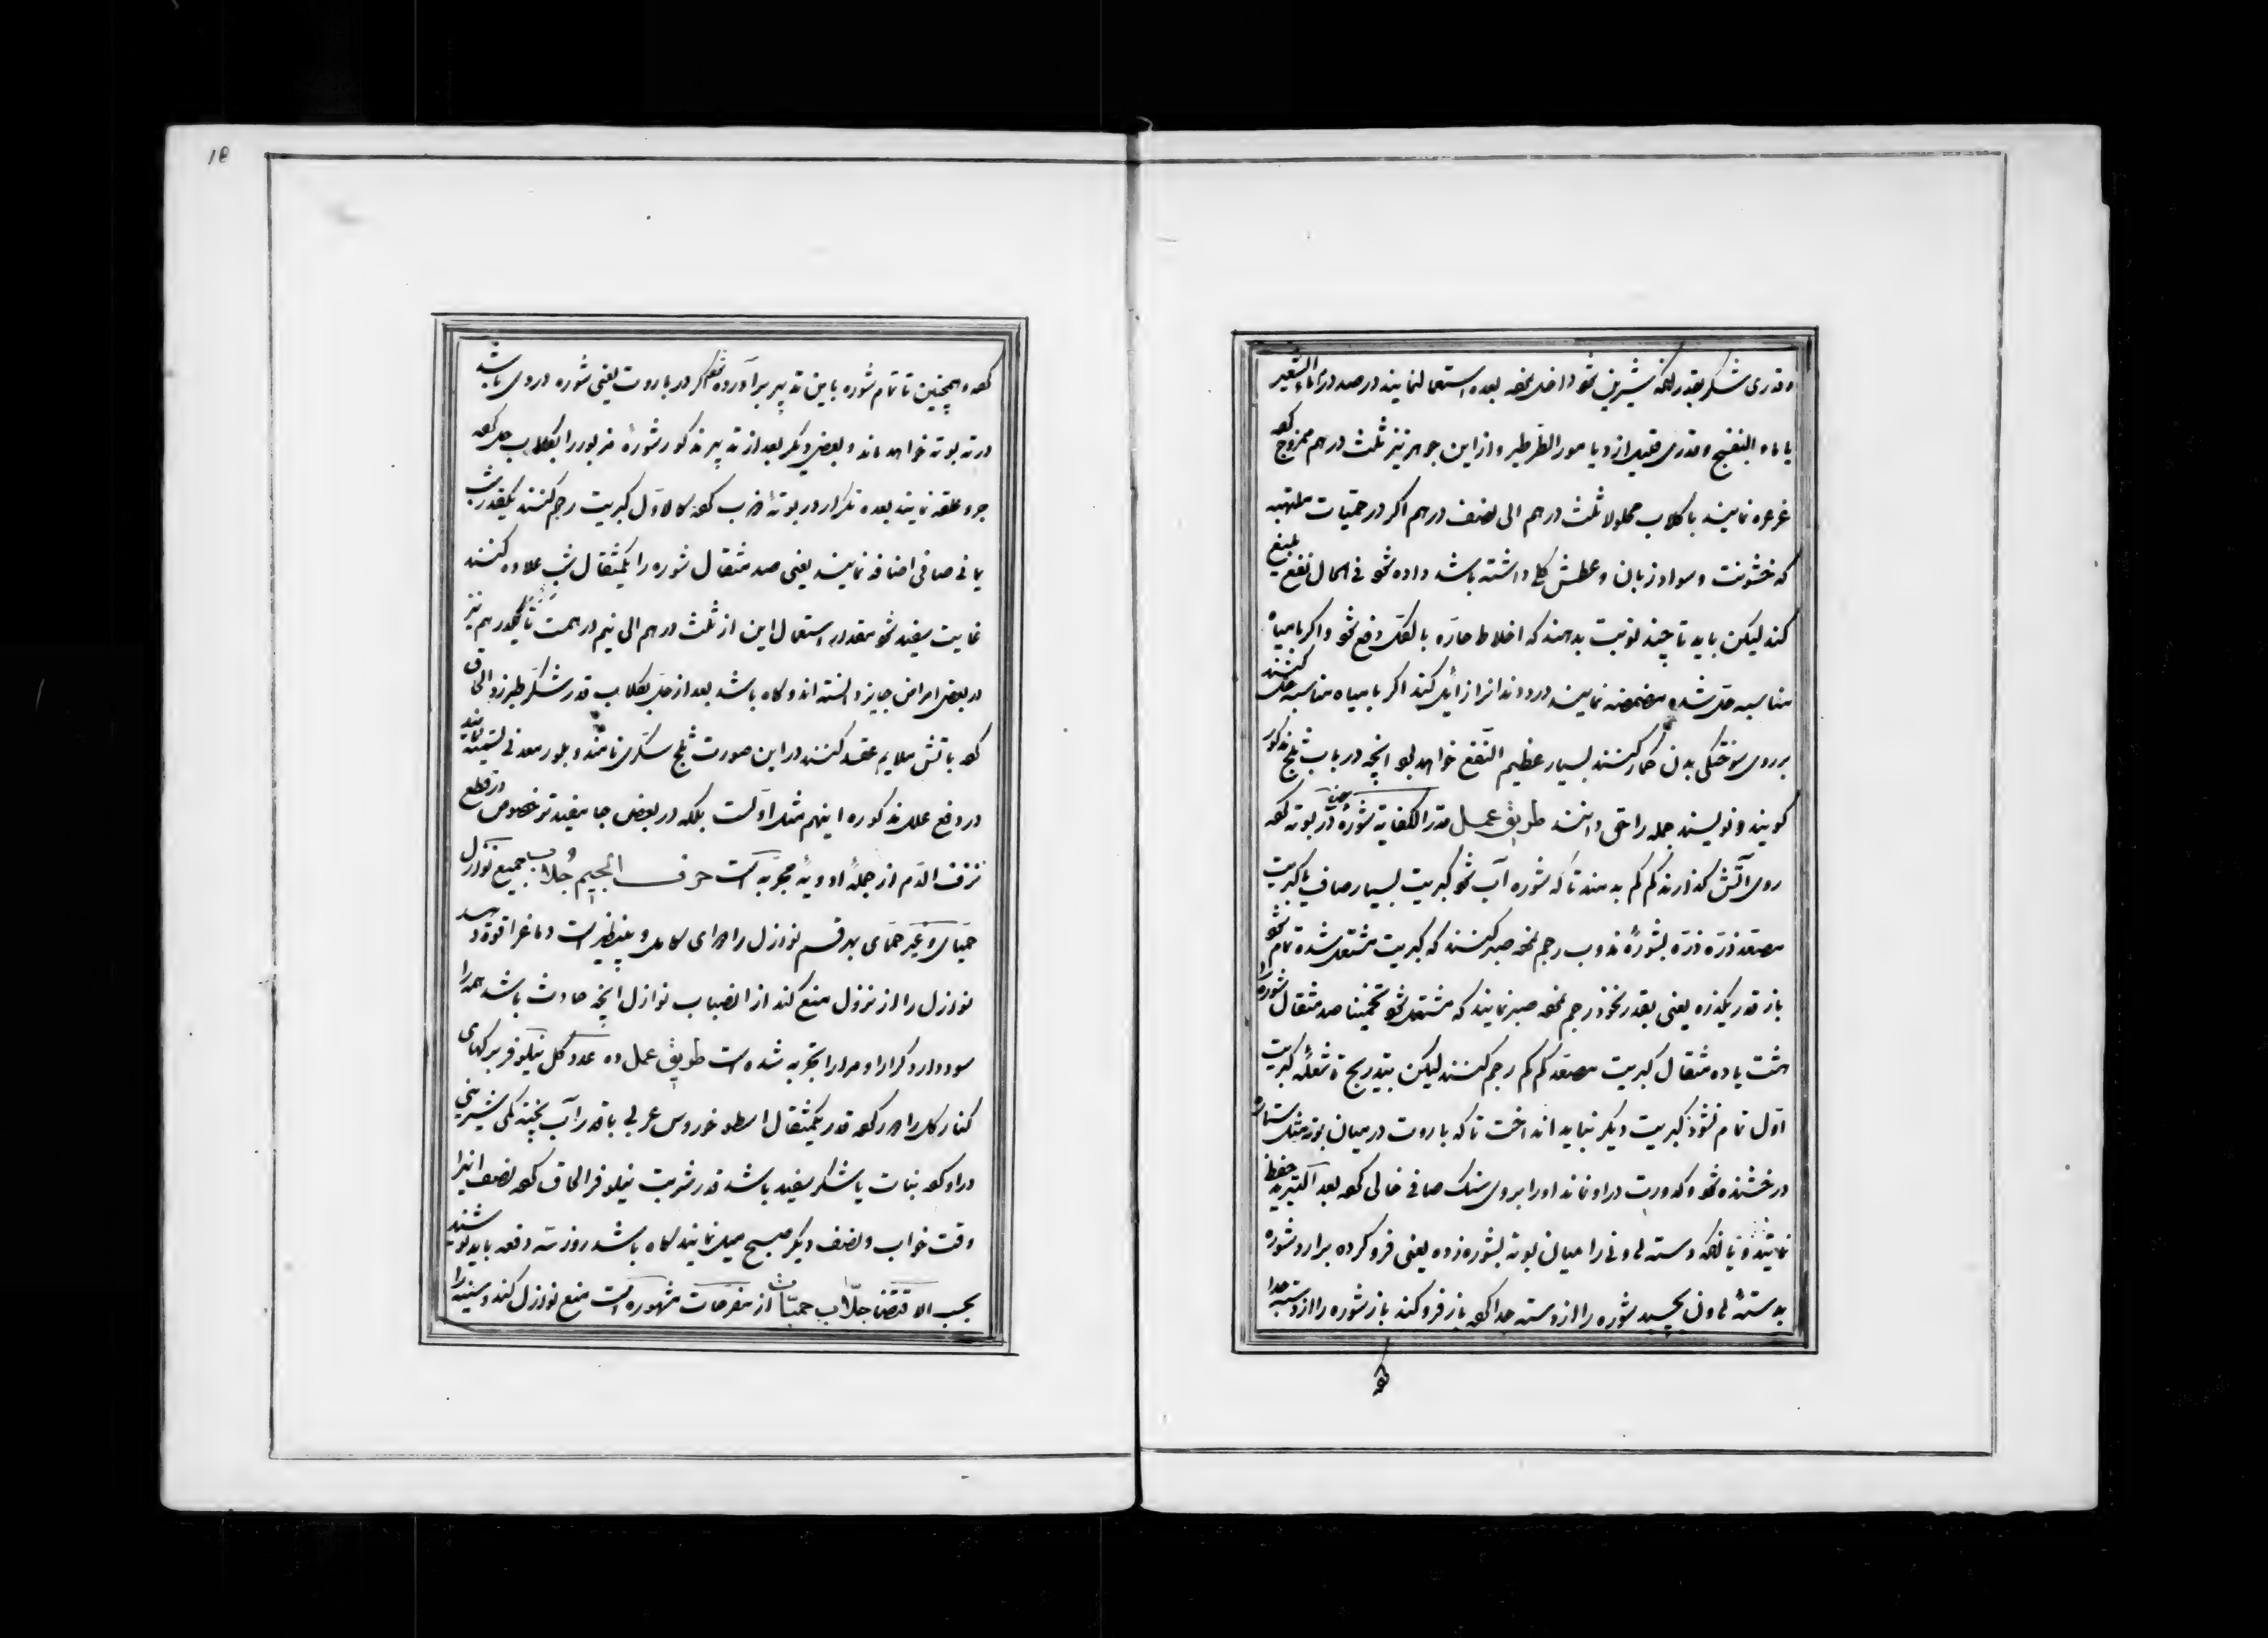 و قدری شکر بقدر آنکه شیرین شود داخل نموده بعده استعمال نمایند در صدد ماء الشعیر
یا ماء البنفسج و قدری قلیل از دیامور الطرطیر و از این جوهر نیز ثلث درهم ممزوج کرده
غرغره نمایند با گلاب محلولا ثلث درهم الی نصف درهم اگر در حمیات ملتهبه
که خشونت و سواد زبان و عطش کلی داشته باشد داده شود فی الحال نفع بلیغ
کند لیکن باید تا چند نوبت بدهند که اخلاط حاره بالکل دفع شود و اگر با میاه
مناسبه حل شده مضمضه نمایند درد دندانرا زائل کند اگر با میاه مناسبه حل کنند
بر روی سوختگی بدن کماد کنند بسیار عظیم النفع خواهد بود انچه در باب ثلج مذکور
گویند و نویسند جمله را حق دانند طریق عمل قدر الکفایة شوره در بوته کرده
روی آتش گذارند کم کم بدمند تا که شوره آب شود کبریت بسیار صاف یا کبریت
مصعد ذره ذره بشورهٔ مذوب رجم نموده صبر کنند که کبریت مشتعل شده تمام شود
باز قدر یکذره یعنی بقدر نخود رجم نموده صبر نمایند که مشتعل شود تخمینا صد مثقال شوره را
هشت یا ده مثقال کبریت مصعد کم کم رجم کنند لیکن بتدریج تا شعلهٔ کبریت
اول تمام نشود کبریت دیگر نباید انداخت تا که باروت در میان بوته مثل ستاره
درخشنده شود و کدورت در او نماند او را بروی سنگ صافی خالی کرده بعد التبرید حفظ
نمایند و یا آنکه دسته هاونی را میان بوته بشوره زده یعنی فرو کرده برآرد شوره
بدستهٔ هاون بچسبد شوره را از دسته جدا کرده باز فرو کند باز شوره را از دسته جدا
کرده
18
کرده و همچنین تا تمام شوره باین تدبیر برآورده شود اگر در باروت یعنی شوره دردی باشد
در ته بوته خواهد ماند و بعضی دیگر بعد از تدبیر مذکور شورهٔ مزبور را بگلاب حل کرده
جر و علقه نمایند بعده تکرار در بوتهٔ ذوب کرده کالاول کبریت رجم کنند بکقدر شب
یمانی صافی اضافه نمایند یعنی صد مثقال شوره را یکمثقال شب علاوه کنند
بغایت سفید شود مقدار استعمال این از ثلث درهم الی نیم درهمست تا یکدرهم نیز
در بعضی امراض جایز دانسته اند و گاه باشد بعد از حل بگلاب قدر شکر طبرزد الحاق
کرده باتش ملایم عقد کنند در این صورت ثلج سکری نامند و بلور معدنی تسمیه نمایند
در دفع علل مذکوره اینهم مثل اولست بلکه در بعضی جا مفیدتر خصوص در قطع
نزف الدم از جملهٔ ادویهٔ مجربه است حرف الجیم جلاب جمیع نوازل
حمیای و غیر حمیای بهر قسم نوازل را دوای کامل و بینظیر است دماغرا قوة دهد
نوازل را از نزول منع کند از انصباب نوازل انچه حادث باشد همه را
سود دارد کرارا و مرارا تجربه شده است طریق عمل ده عدد گل نیلوفر برگهای
کنار گل را دور کرده قدر یکمثقال اسطوخودوس عربی باقدر آب پخته کمی شیرینی
در او کرده نبات یا شکر سفید باشد قدر شربت نیلوفر الحاق کرده نصف اینرا
وقت خواب و نصف دیگر صبح میل نمایند گاه باشد روز سه دفعه باید نوشند
بحسب الاقتضا جلاب حمیات از مفرحات مشهوره است منع نوازل کند و سینه را